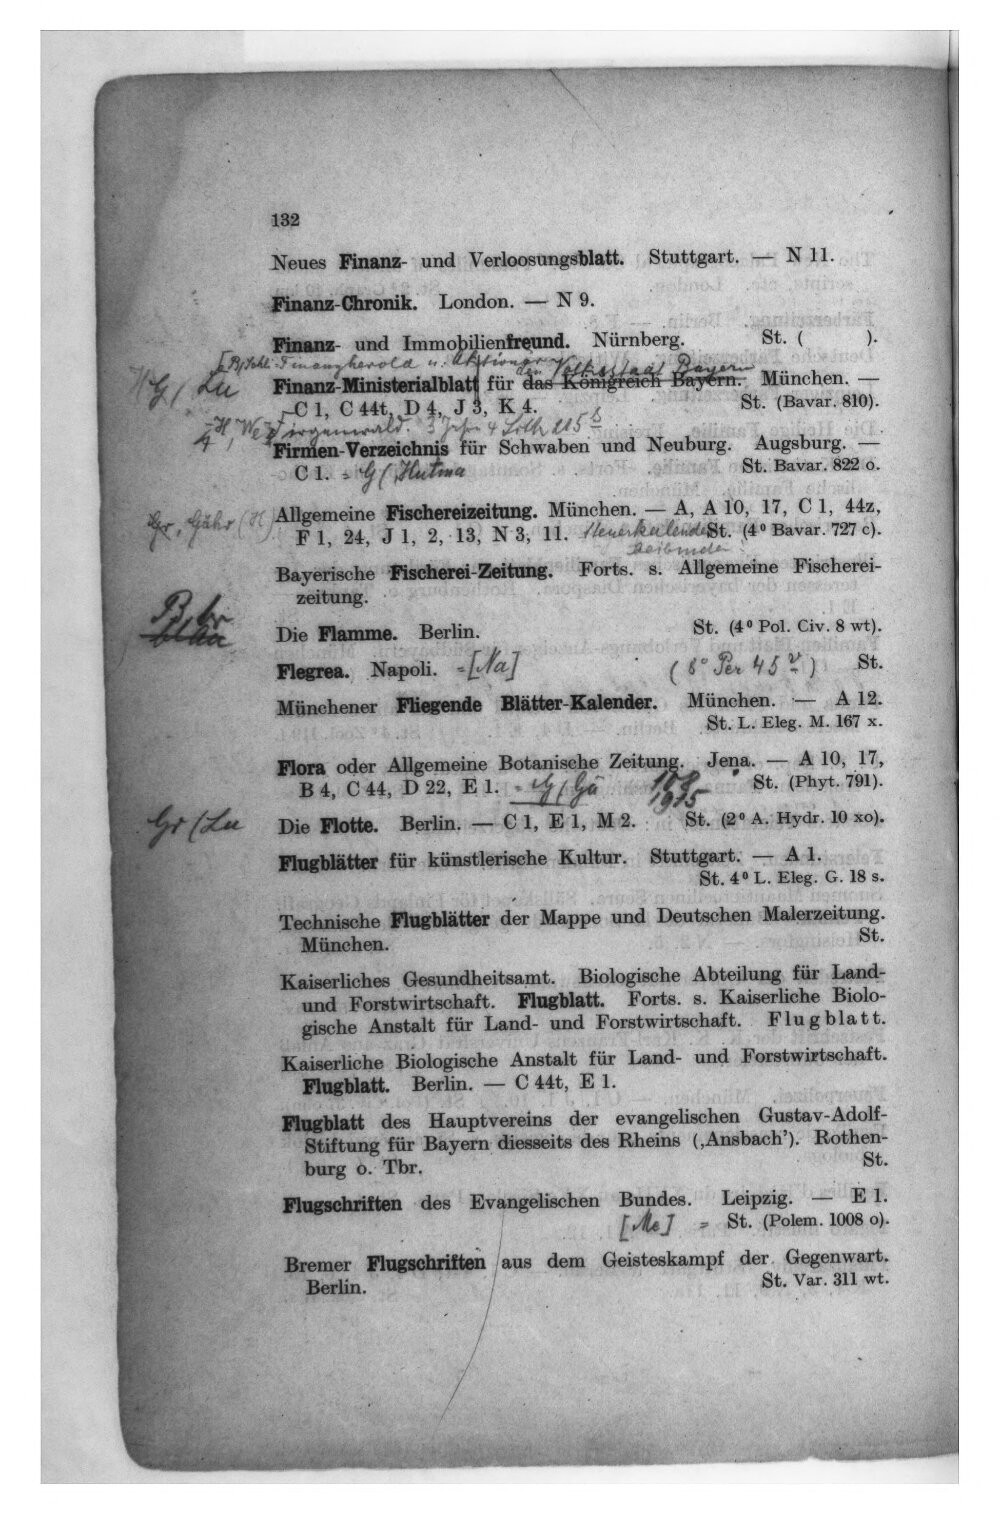 132
Neues Finanz- und Verloosungsblatt. Stuttgart. — N 11.
Finanz-Chronik. London. — N 9.
Finanz- und Immobilienfreund. Nürnberg. St. ( ).
Finanzherold u. Aktionär
den Volksstaat Bayern
G / Lu
Finanz-Ministerialblatt für das Königreich Bayern. München. —
C 1, C 44t, D 4, J 3, K 4. St. (Bavar. 810).
Firmen-Verzeichnis für Schwaben und Neuburg. Augsburg. —
C 1. = G ( St. Bavar. 822 o.
Allgemeine Fischereizeitung. München. — A, A 10, 17, C 1, 44z,
F 1, 24, J 1, 2, 13, N 3, 11. St. (4° Bavar. 727 c).
Bayerische Fischerei-Zeitung. Forts. s. Allgemeine Fischerei-
zeitung.
Die Flamme. Berlin. St. (4° Pol. Civ. 8 wt).
Flegrea. Napoli. =[Na] (8° Per 45 v) St.
Münchener Fliegende Blätter-Kalender. München. — A 12.
St. L. Eleg. M. 167 x.
Flora oder Allgemeine Botanische Zeitung. Jena. — A 10, 17,
B 4, C 44, D 22, E 1. = G / Gä 1915 St. (Phyt. 791).
Gr (Lu
Die Flotte. Berlin. — C 1, E 1, M 2. St. (2° A. Hydr. 10 xo).
Flugblätter für künstlerische Kultur. Stuttgart. — A 1.
St. 4° L. Eleg. G. 18 s.
Technische Flugblätter der Mappe und Deutschen Malerzeitung.
München. St.
Kaiserliches Gesundheitsamt. Biologische Abteilung für Land-
und Forstwirtschaft. Flugblatt. Forts. s. Kaiserliche Biolo-
gische Anstalt für Land- und Forstwirtschaft. Flugblatt.
Kaiserliche Biologische Anstalt für Land- und Forstwirtschaft.
Flugblatt. Berlin. — C 44t, E 1.
Flugblatt des Hauptvereins der evangelischen Gustav-Adolf-
Stiftung für Bayern diesseits des Rheins (‚Ansbach’). Rothen-
burg o. Tbr. St.
Flugschriften des Evangelischen Bundes. Leipzig. — E 1.
[Me] = St. (Polem. 1008 o).
Bremer Flugschriften aus dem Geisteskampf der Gegenwart.
Berlin. St. Var. 311 wt.